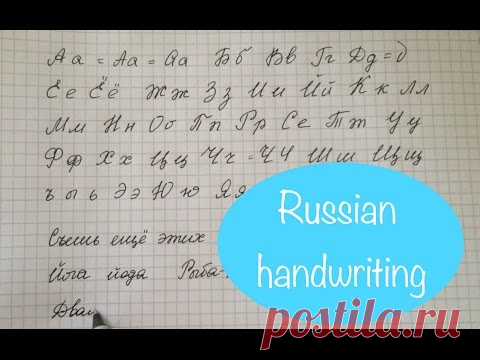 Аа = Аа = Аа Бб Вв Гг Дд = д
Ее Ёё Жж Зз Ии Йй Кк Лл
Мм Нн Оо Пп Рр Сс Тт Уу
Фф Хх Цц Чч = Чч Шш Щщ
ъ ы ь Ээ Юю Яя
Съешь ещё этих
Йога йода Рыба-
Два
Russian
handwriting
postila.ru